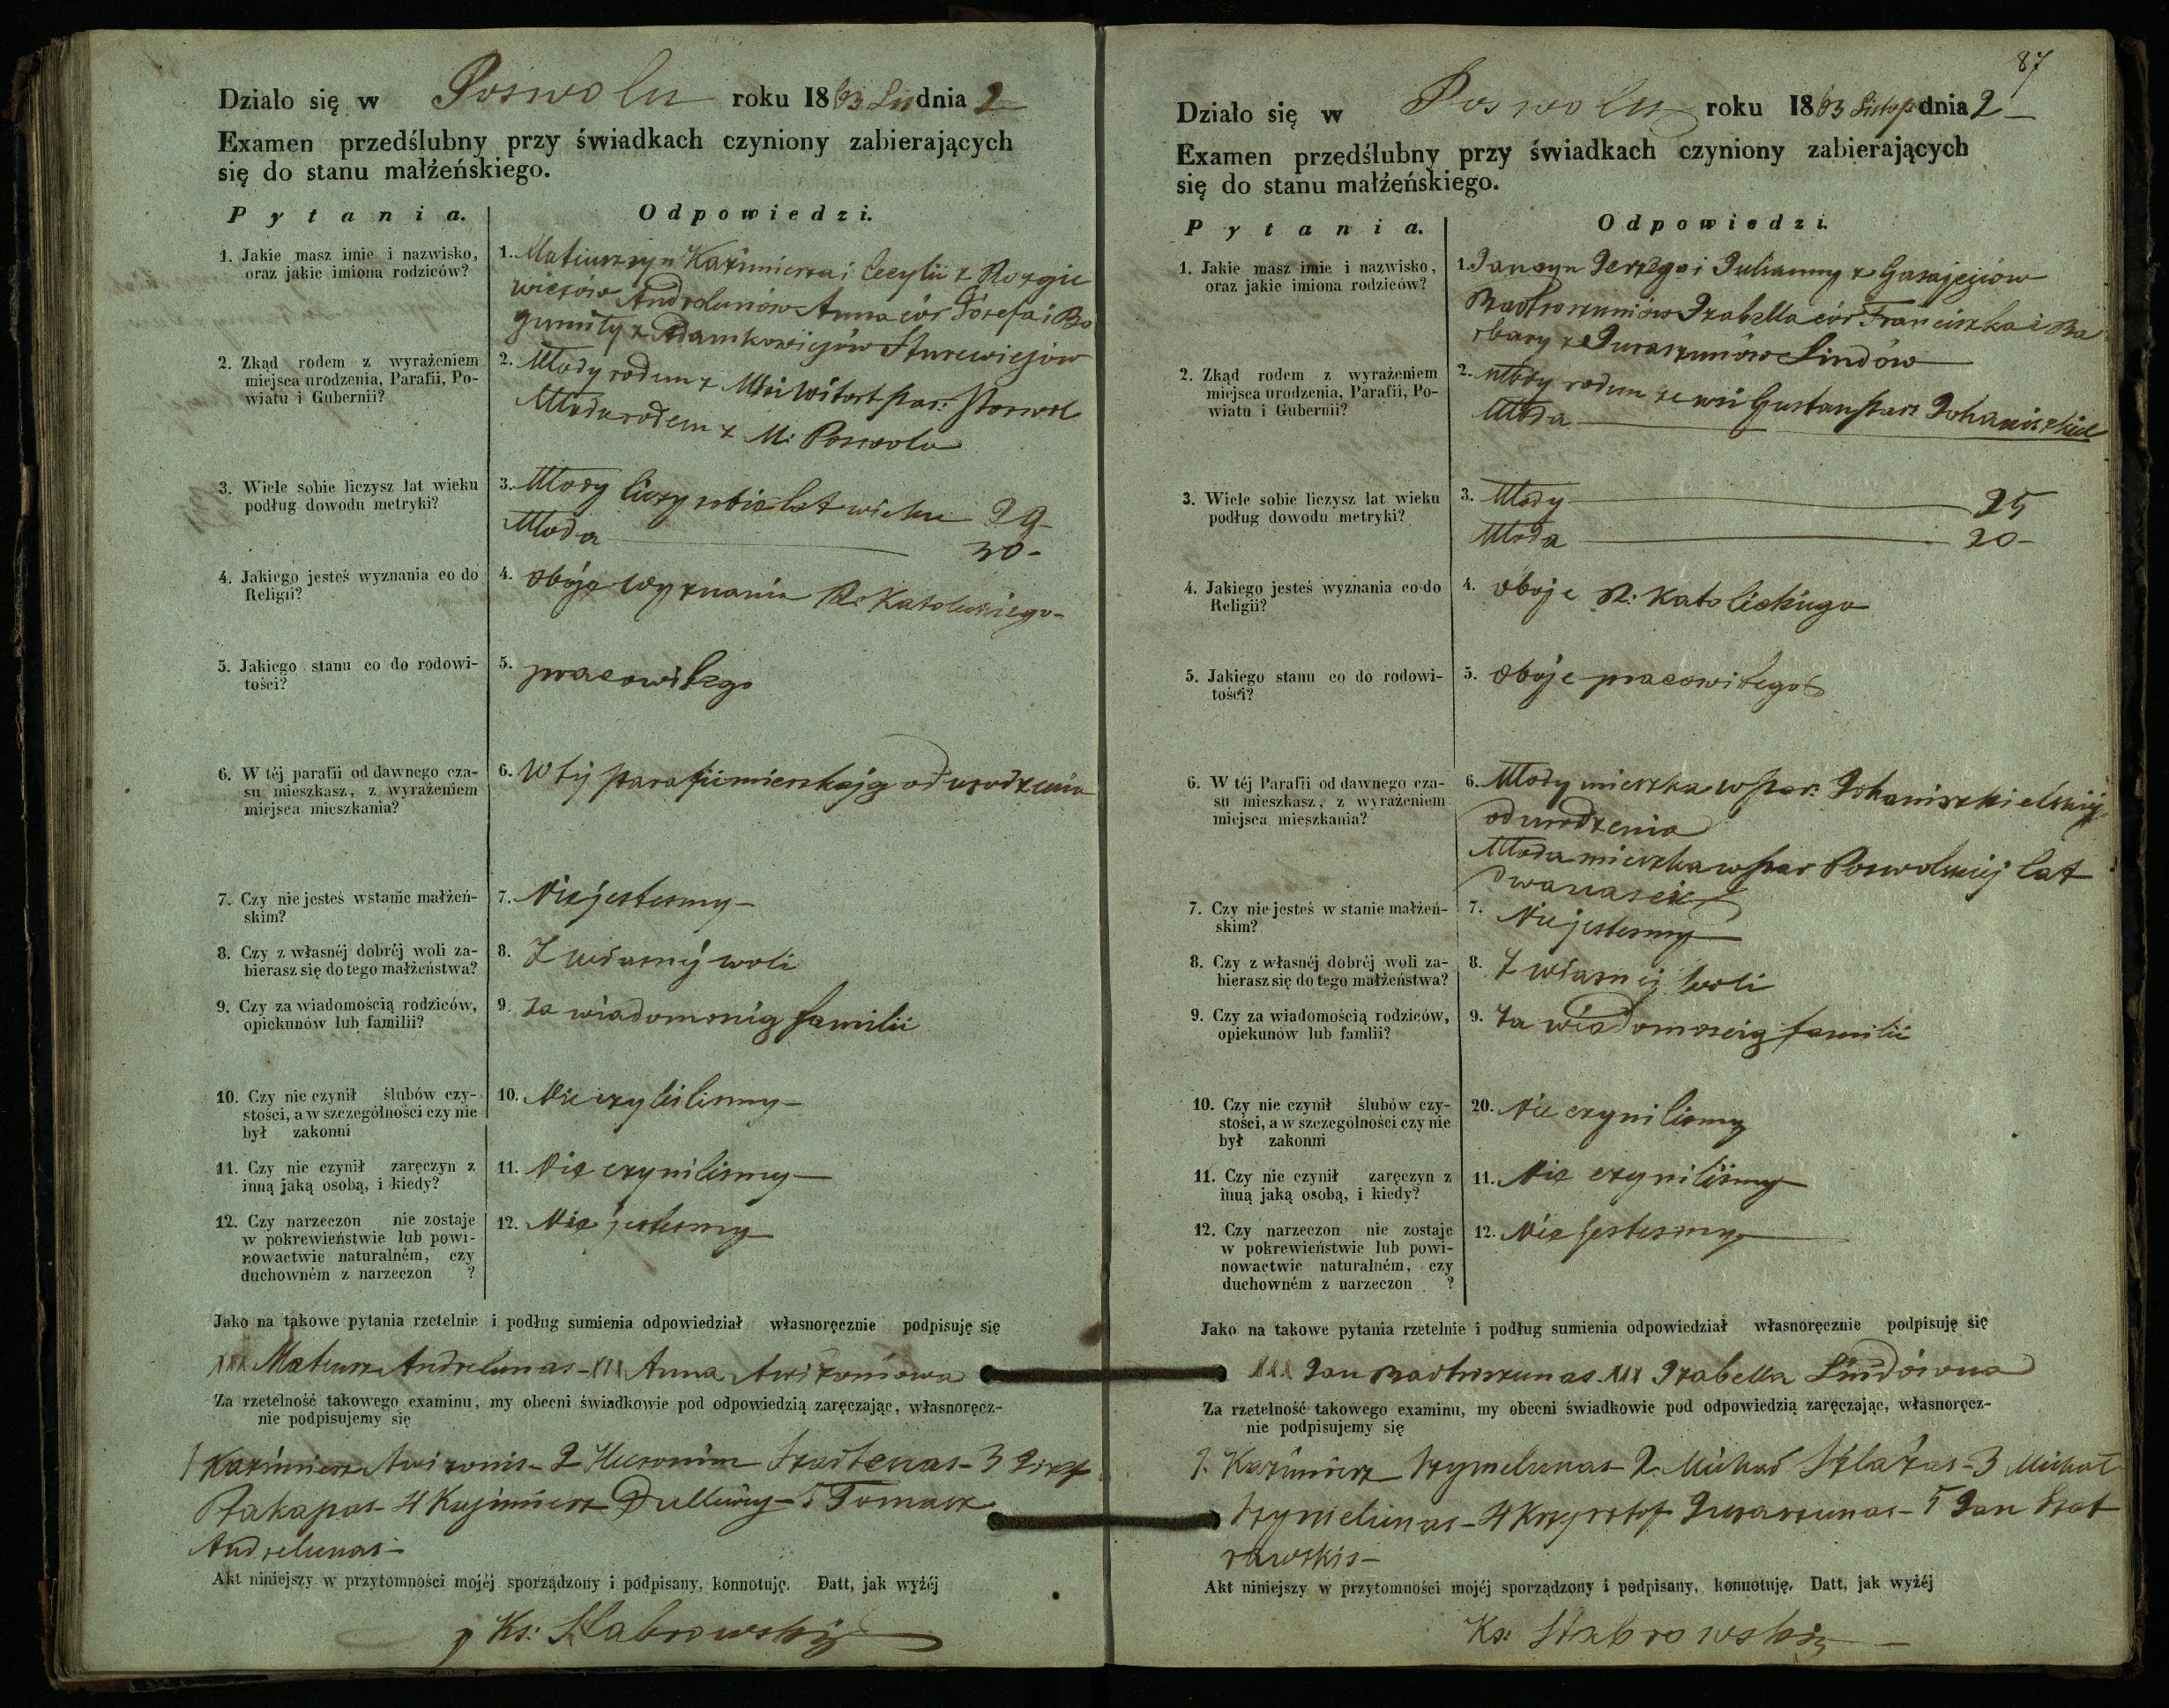 Działo się w Poswolu roku 1863 Lis dnia 2
Examen przedślubny przy świadkach czyniony zabierających
się do stanu małżeńskiego.
Pytania. Odpowiedzi.
1. Jakie masz imie i nazwisko,
oraz jakie imiona rodziców?
1. Mateusz syn Kaźimierza i Cecylii z Rozgie
wiczów Andrelunów Anna cór Józefa i Bo
gumiły z Adamkowiczów
2. Zkąd rodem z wyrażeniem
miejsca urodzenia, Parafii, Po-
wiatu i Gubernii?
2. Młody rodem z Wsi Witort par: Poswol
Młoda rodem z M: Poswola
3. Wiele sobie liczysz lat wieku
podług dowodu metryki?
3. Młody liczy sobie lat wieku 29-
Młoda 30-
4. Jakiego jesteś wyznania co do
Religii?
4. Obojga wyznania R: Katolickiego-
5. Jakiego stanu co do rodowi-
tości?
5. pracowitego
6. W téj parafii od dawnego cza-
su mieszkasz, z wyrażeniem
miejsca mieszkania?
6. W tej parafii mieszkają od urodzenia
7. Czy nie jesteś wstanie małżeń-
skim?
7. Nie jestesmy-
8. Czy z własnéj dobréj woli za-
bierasz się do tego małżeństwa?
8. Z własnéj woli
9. Czy za wiadomością rodziców,
opiekunów lub familii?
9. Za wiadomoscią familii
10. Czy nie czynił ślubów czy-
stości, a w szczególności czy nie
był zakonni
10. Nie czylilismy-
11. Czy nie czynił zaręczyn z
inną jaką osobą, i kiedy?
11. Nie czynilismy-
12. Czy narzeczon nie zostaje
w pokrewieństwie lub powi-
nowactwie naturalném, czy
duchowném z narzeczon ?
12. Nie jestesmy
Jako na takowe pytania rzetelnie i podług sumienia odpowiedział własnoręcznie podpisuję się
XXX Mateusz Andrelunas- XXX Anna Awiżoniowa
Za rzetelność takowego examinu, my obecni świadkowie pod odpowiedzią zaręczając, własnoręcz-
nie podpisujemy się
1 Kaźimierz Awizonis- 2 Hieronim - 3 Józef
Rakapas- 4 Kazimierz - 5 Tomasz
Andrelunas-
Akt niniejszy w przytomności mojéj sporządzony i podpisany, konnotuję. Datt, jak wyżéj
Ks: Stabrowski
87
Działo się w Poswolu roku 1863 Listop dnia 2-
Examen przedślubny przy świadkach czyniony zabierających
się do stanu małżeńskiego.
Pytania. Odpowiedzi.
1. Jakie masz imie i nazwisko,
oraz jakie imiona rodziców?
1. Jan syn Jerzego i Julianny z
Izabella cór Franciszka i Ba
rbary z Juraszunów Lindów
2. Zkąd rodem z wyrażeniem
miejsca urodzenia, Parafii, Po-
wiatu i Gubernii?
2. Młody rodem ze wsi Gustan par: Johaniszkiel
Młoda
3. Wiele sobie liczysz lat wieku
podług dowodu metryki?
3. Młody 25
Młoda 20-
4. Jakiego jesteś wyznania co do
Religii?
4. Oboje R: Katolickiego
5. Jakiego stanu co do rodowi-
tości?
5. Oboje pracowitego
6. W téj Parafii od dawnego cza-
su mieszkasz, z wyrażeniem
miejsca mieszkania?
6. Młody mieszka w par: Johaniszkielskiej
od urodzenia
Młoda mieszka w par Poswolskiej lat
dwanascie
7. Czy nie jesteś w stanie małżeń-
skim?
7. Nie jestesmy
8. Czy z własnéj dobréj woli za-
bierasz się do tego małżeństwa?
8. Z własnej woli
9. Czy za wiadomością rodziców,
opiekunów lub famlii?
9. Za wiadomoscią familii
10. Czy nie czynił ślubów czy-
stości, a w szczególności czy nie
był zakonni
20. Nie czynilismy
11. Czy nie czynił zaręczyn z
inną jaką osobą, i kiedy?
11. Nie czynilismy-
12. Czy narzeczon nie zostaje
w pokrewieństwie lub powi-
nowactwie naturalném, czy
duchowném z narzeczon ?
12. Nie jestesmy
Jako na takowe pytania rzetelnie i podług sumienia odpowiedział własnoręcznie podpisuję się
XXX Jan XXX Izabella Lindówna
Za rzetelność takowego examinu, my obecni świadkowie pod odpowiedzią zaręczając, własnoręcz-
nie podpisujemy się
1. Kazimierz Szymelunas- 2. Michał Szlażas- 3 Michał
Szymelunas- 4 Krzysztof Juraszunas- 5 Jan Szat
rawskis-
Akt niniejszy w przytomności mojéj sporządzony i podpisany, konnotuję. Datt, jak wyżéj
Ks: Stabrowski